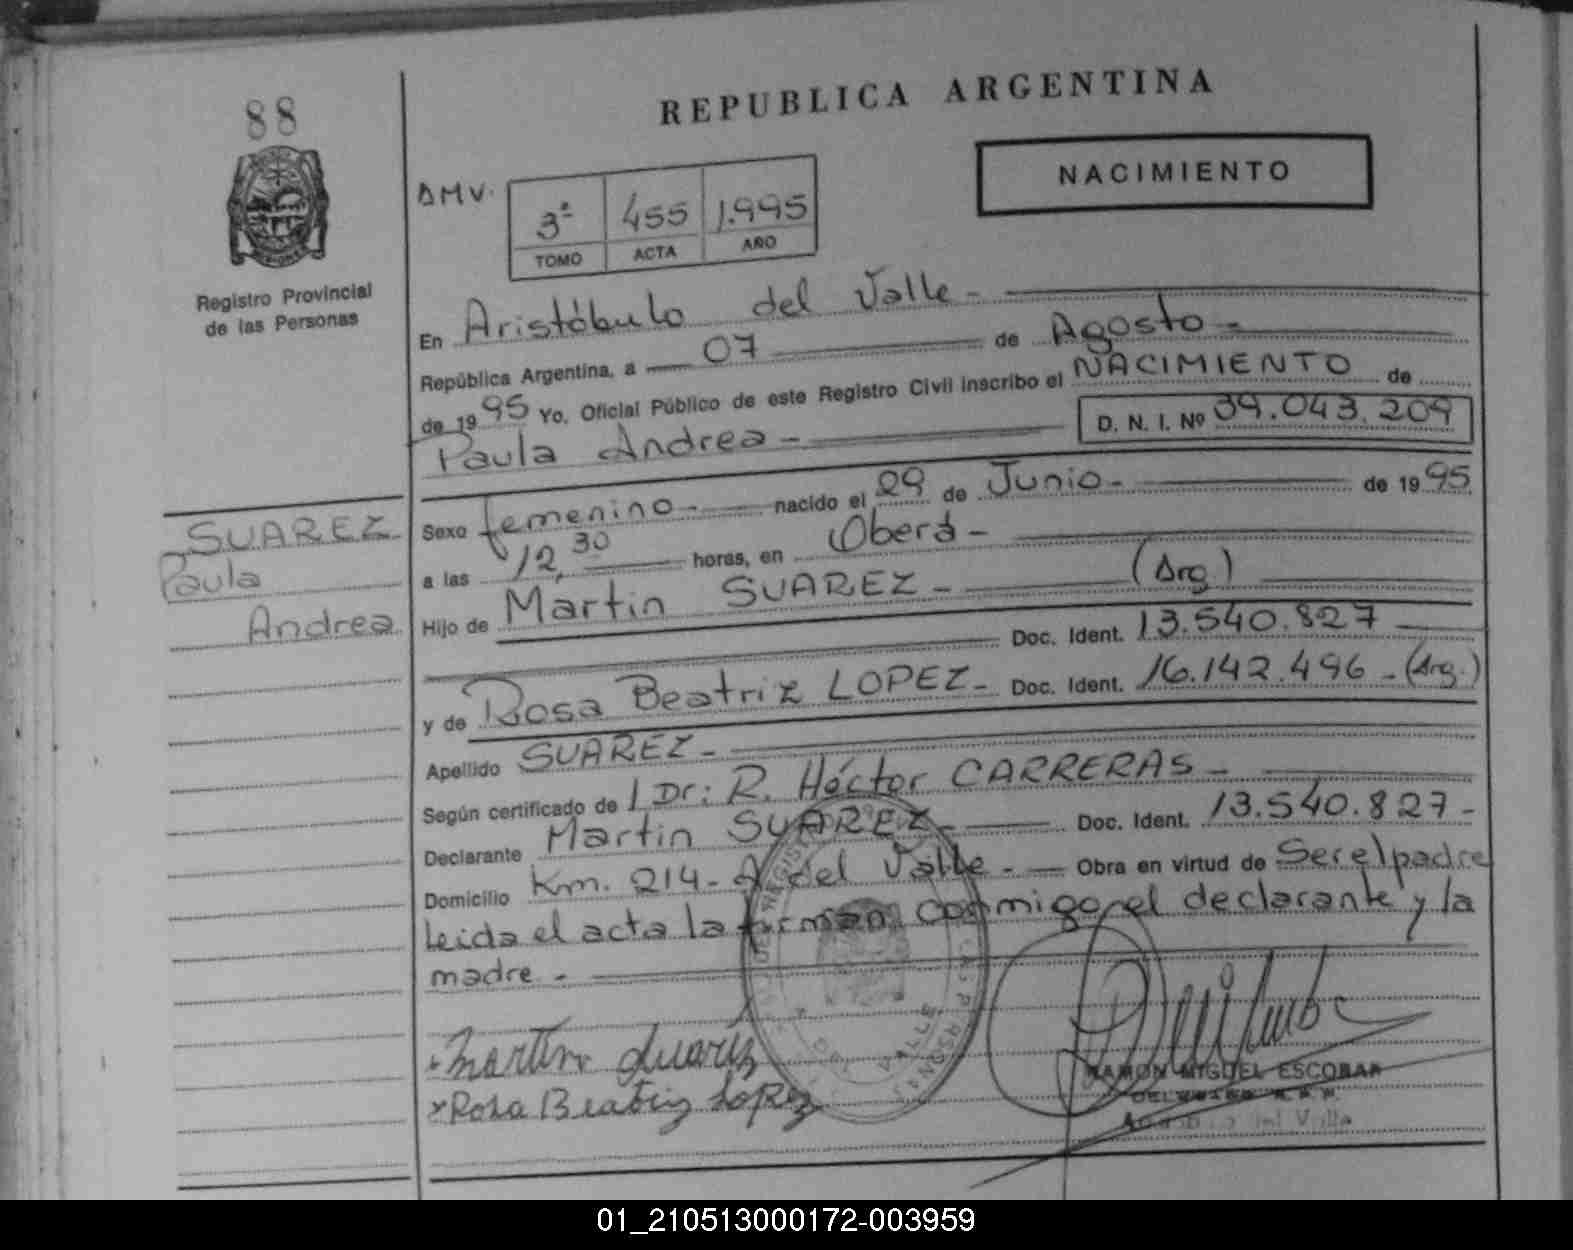 88
REPUBLICA ARGENTINA
NACIMIENTO
Registro Provincial
de las Personas
DMV.
3º 455 1.995
TOMO ACTA AÑO
En Aristóbulo del Valle -
República Argentina, a 07 de Agosto -
de 1995 Yo. Oficial Público de este Registro Civil inscribo el NACIMIENTO de
Paula Andrea - D. N. I. Nº 39.043.209
SUAREZ
Paula
Andrea
Sexo femenino - nacido el 29 de Junio - de 1995
a las 12,30 horas, en Oberá -
Hijo de Martin SUAREZ - (Arg.)
Doc. Ident. 13.540.827
y de Rosa Beatriz LOPEZ - Doc. Ident. 16.142.496 - (Arg.)
Apellido SUAREZ -
Según certificado de l Dr: R. Héctor CARRERAS -
Declarante Martin SUAREZ - Doc. Ident. 13.540.827 -
Domicilio Km. 214 - A. del Valle - Obra en virtud de Ser el padre
leida el acta la firman conmigo, el declarante y la
madre -
Martin Suarez
x Rosa Beatriz Lopez
RAMON MIGUEL ESCOBAR
01_210513000172-003959